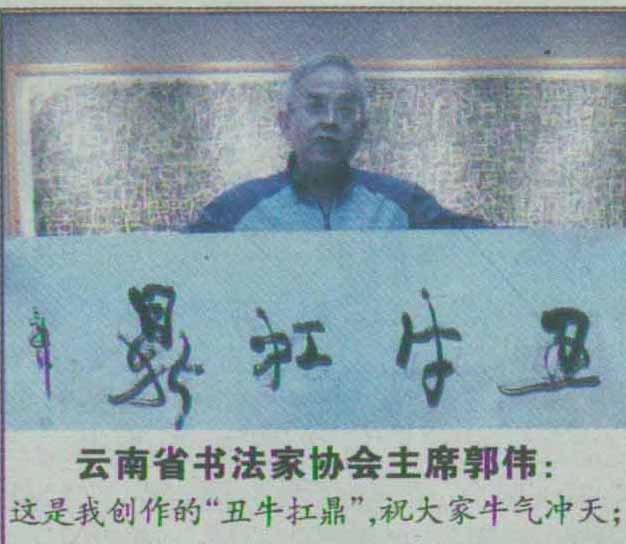 丑牛扛鼎
云南省书法家协会主席郭伟：
这是我创作的“丑牛扛鼎”，祝大家牛气冲天；